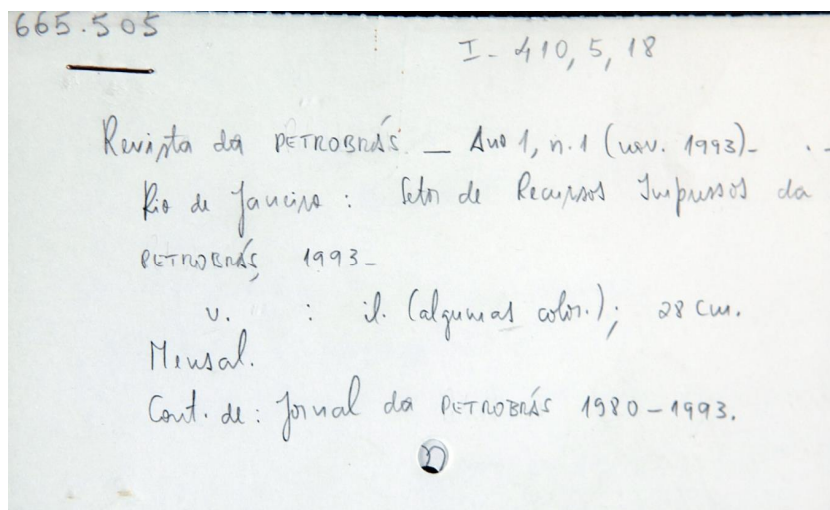 665.505
I- 410, 5, 18
Revista da PETROBRÁS — Ano 1, n. 1 (nov. 1993)- . -
Rio de Janeiro : Setor de Recursos Impressos da
PETROBRÁS, 1993-
v. : il. (algumas color.); 28 cm.
Mensal.
Cont. de: Jornal da PETROBRÁS 1980-1993.